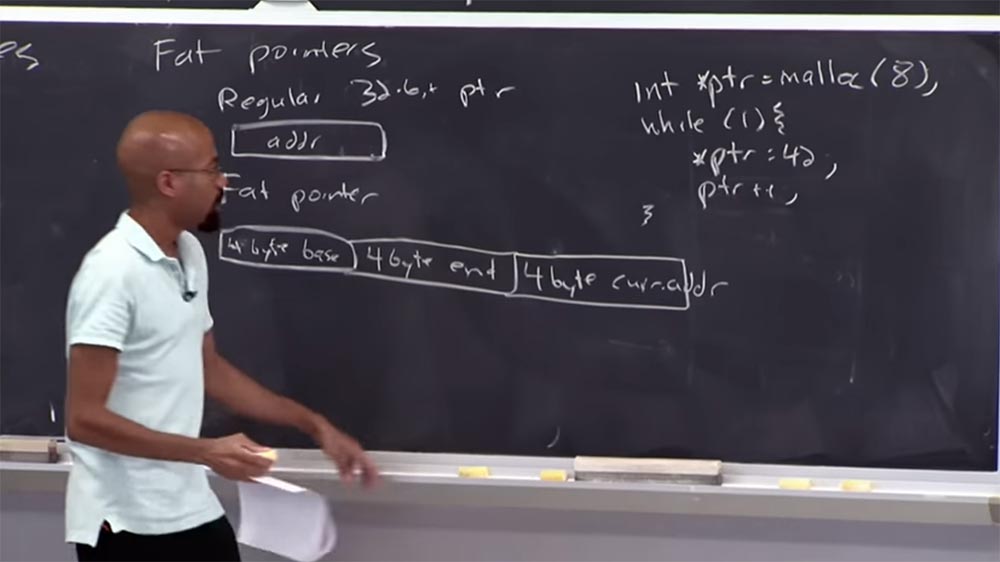 es
Fat pointers
Regular 32-bit ptr
addr
Fat pointer
4-byte base 4 byte end 4 byte curr.addr
int *ptr = malloc(8);
while (1) {
*ptr = 42;
ptr++;
}